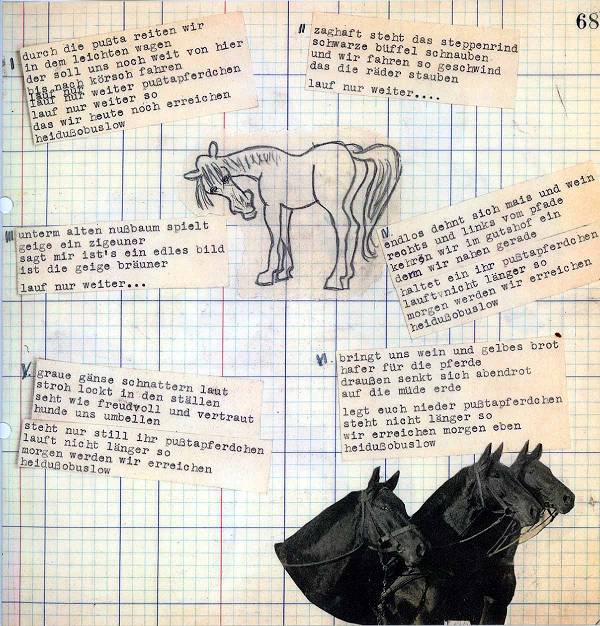 68
I
durch die pußta reiten wir
in dem leichten wagen
der soll uns noch weit von hier
bis nach körsch fahren
lauf nur weiter pußtapferdchen
lauf nur weiter so
das wir heute noch erreichen
heidußobuslow
II
zaghaft steht das steppenrind
schwarze büffel schnauben
und wir fahren so geschwind
das die räder stauben
lauf nur weiter....
III
unterm alten nußbaum spielt
geige ein zigeuner
sagt mir ist's ein edles bild
ist die geige bräuner
lauf nur weiter...
IV.
endlos dehnt sich mais und wein
rechts und links vom pfade
kehren wir im gutshof ein
denn wir nahen gerade
haltet ein ihr pußtapferdchen
lauftvnicht länger so
morgen werden wir erreichen
heidußobuslow
V.
graue gänse schnattern laut
stroh lockt in den ställen
seht wie freudvoll und vertraut
hunde uns umbellen
steht nur still ihr pußtapferdchen
lauft nicht länger so
morgen werden wir erreichen
heidußobuslow
VI.
bringt uns wein und gelbes brot
hafer für die pferde
draußen senkt sich abendrot
auf die müde erde
legt euch nieder pußtapferdchen
steht nicht länger so
wir erreichen morgen eben
heidußobuslow